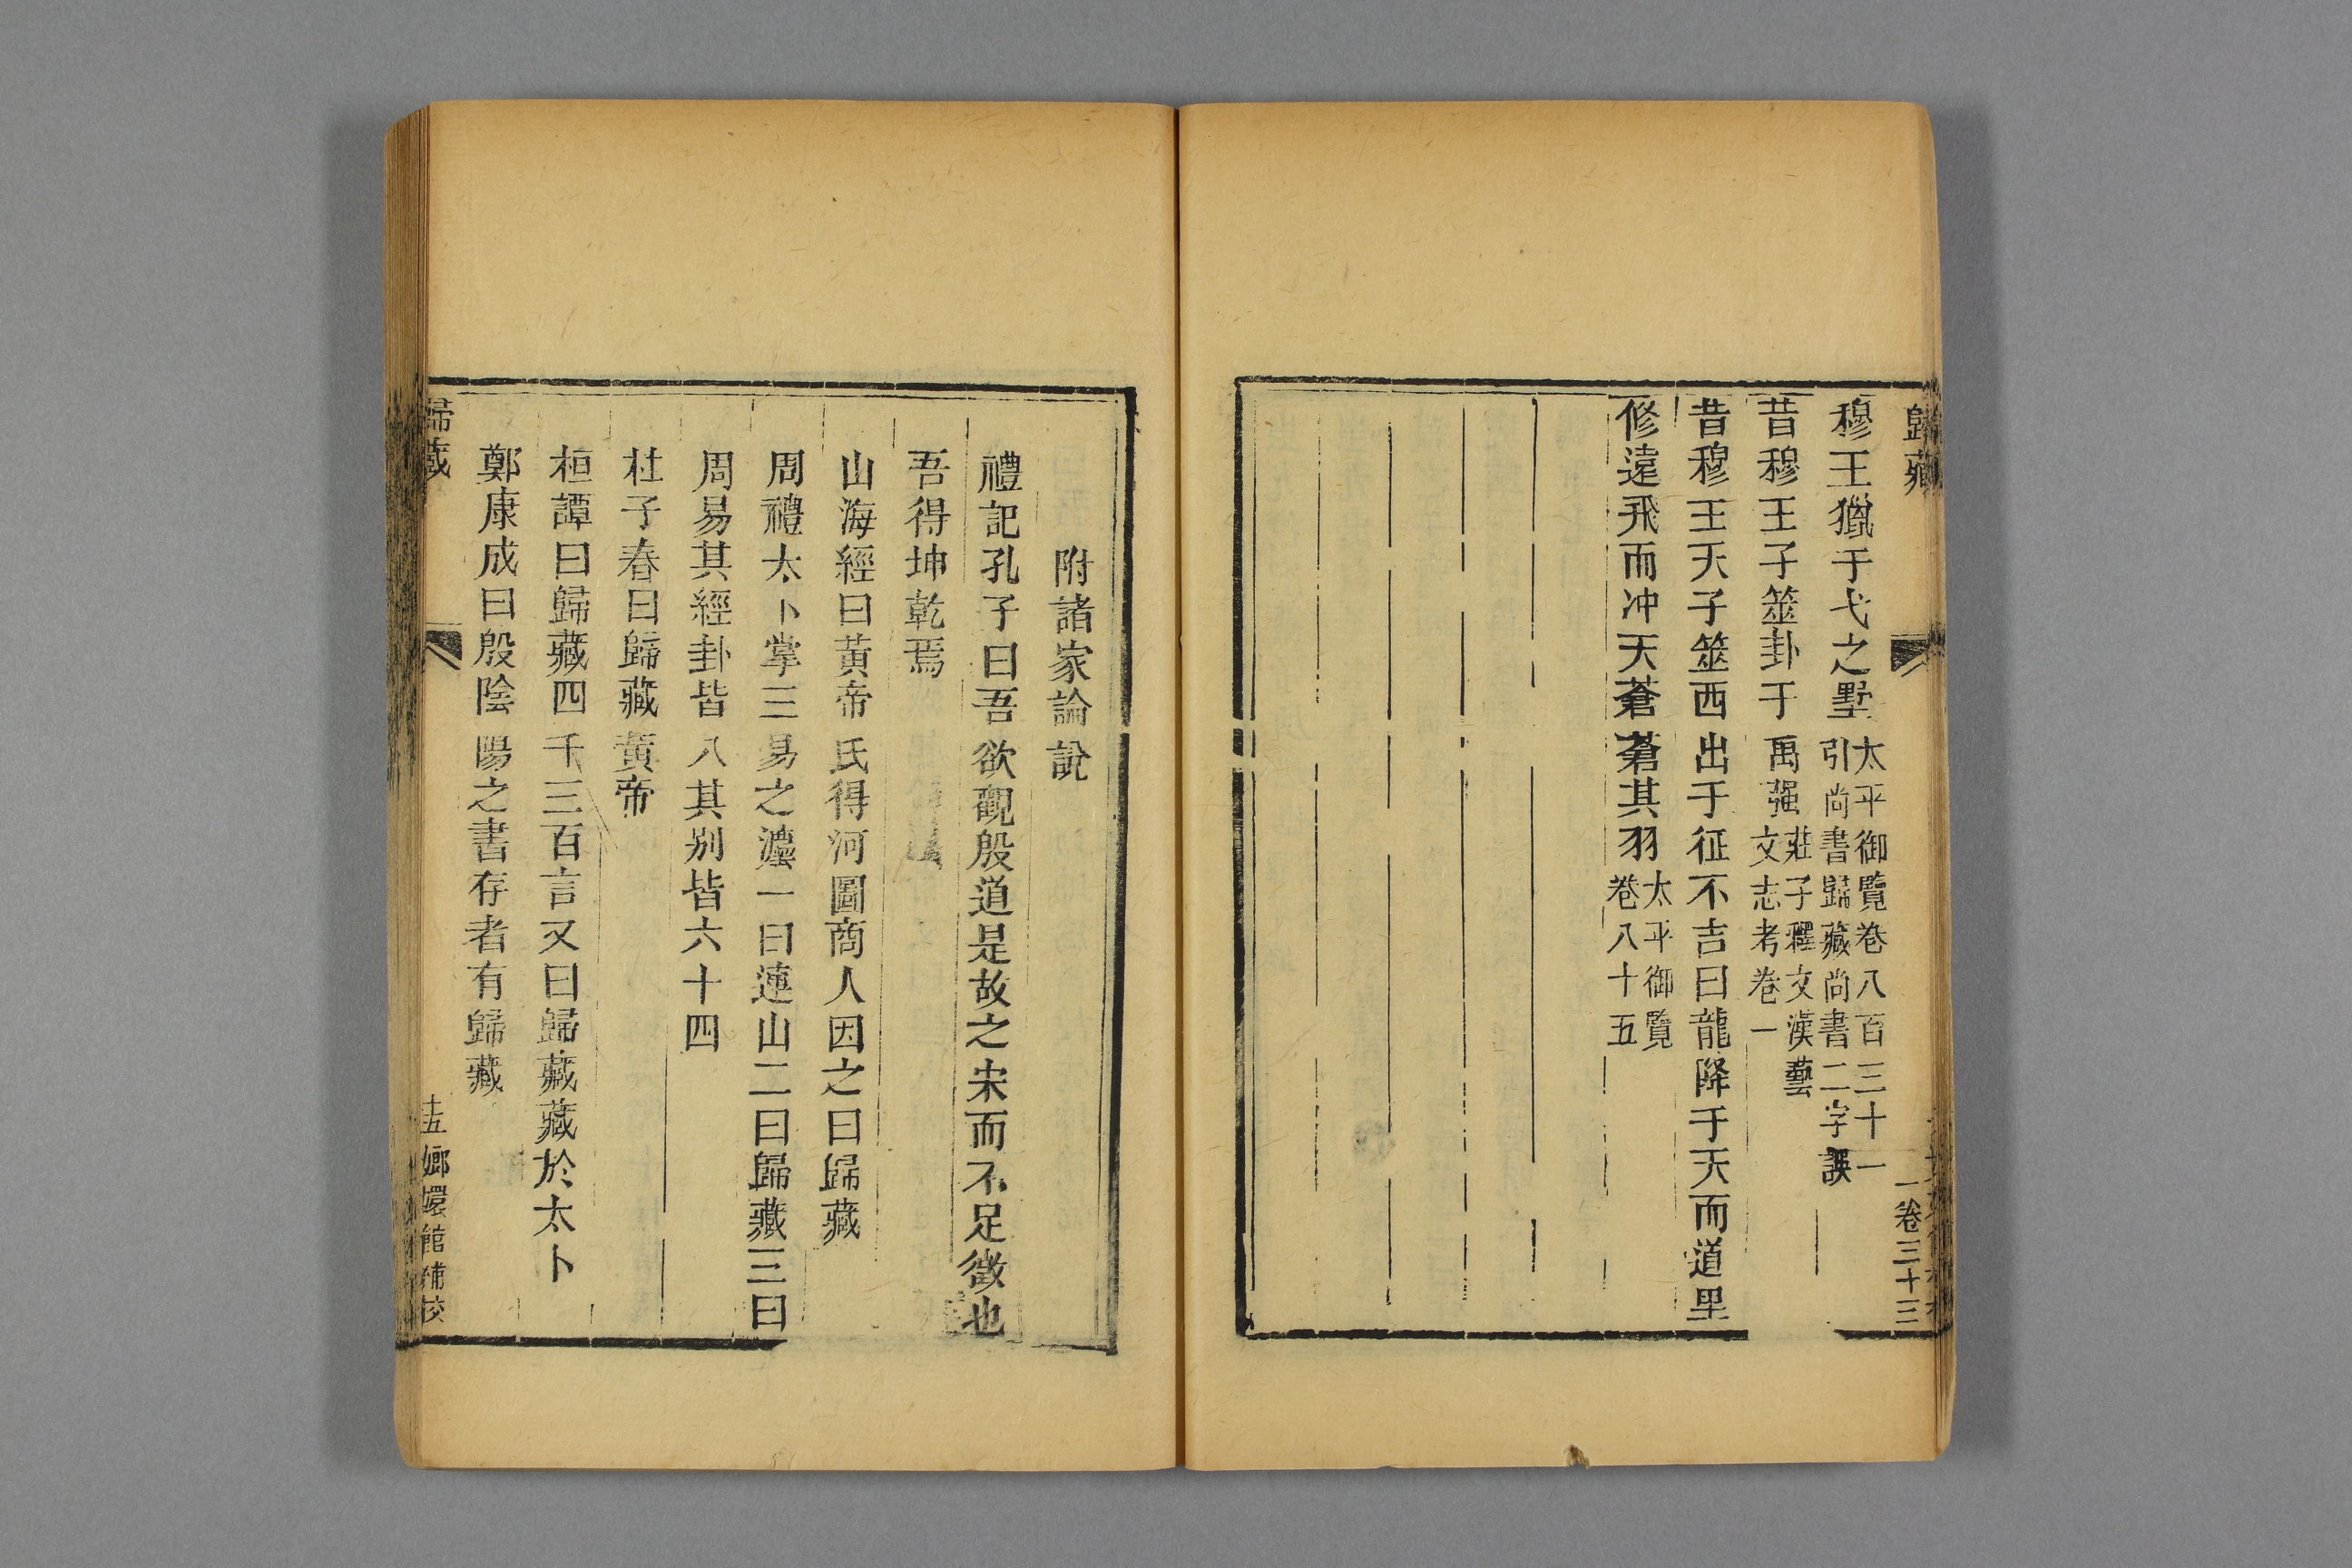 歸藏
穆王獵于弋之墅太平御覽卷八百三十一
引尚書歸藏尚書二字誤
昔穆王子筮卦于禹强莊子釋文漢藝
文志考卷一
昔穆王天子筮西出于征不吉曰龍降于天而道里
修遠飛而冲天蒼蒼其羽太平御覽
卷八十五
卷三十三
附諸家論說
禮記孔子曰吾欲觀殷道是故之宋而不足徵也
吾得坤乾焉
山海經曰黃帝氏得河圖商人因之曰歸藏
周禮太卜掌三易之灋一曰連山二曰歸藏三曰
周易其經卦皆八其別皆六十四
杜子春曰歸藏黃帝
桓譚曰歸藏四千三百言又曰歸藏藏於太卜
鄭康成曰殷陰陽之書存者有歸藏
歸藏
十五嫏嬛館補校